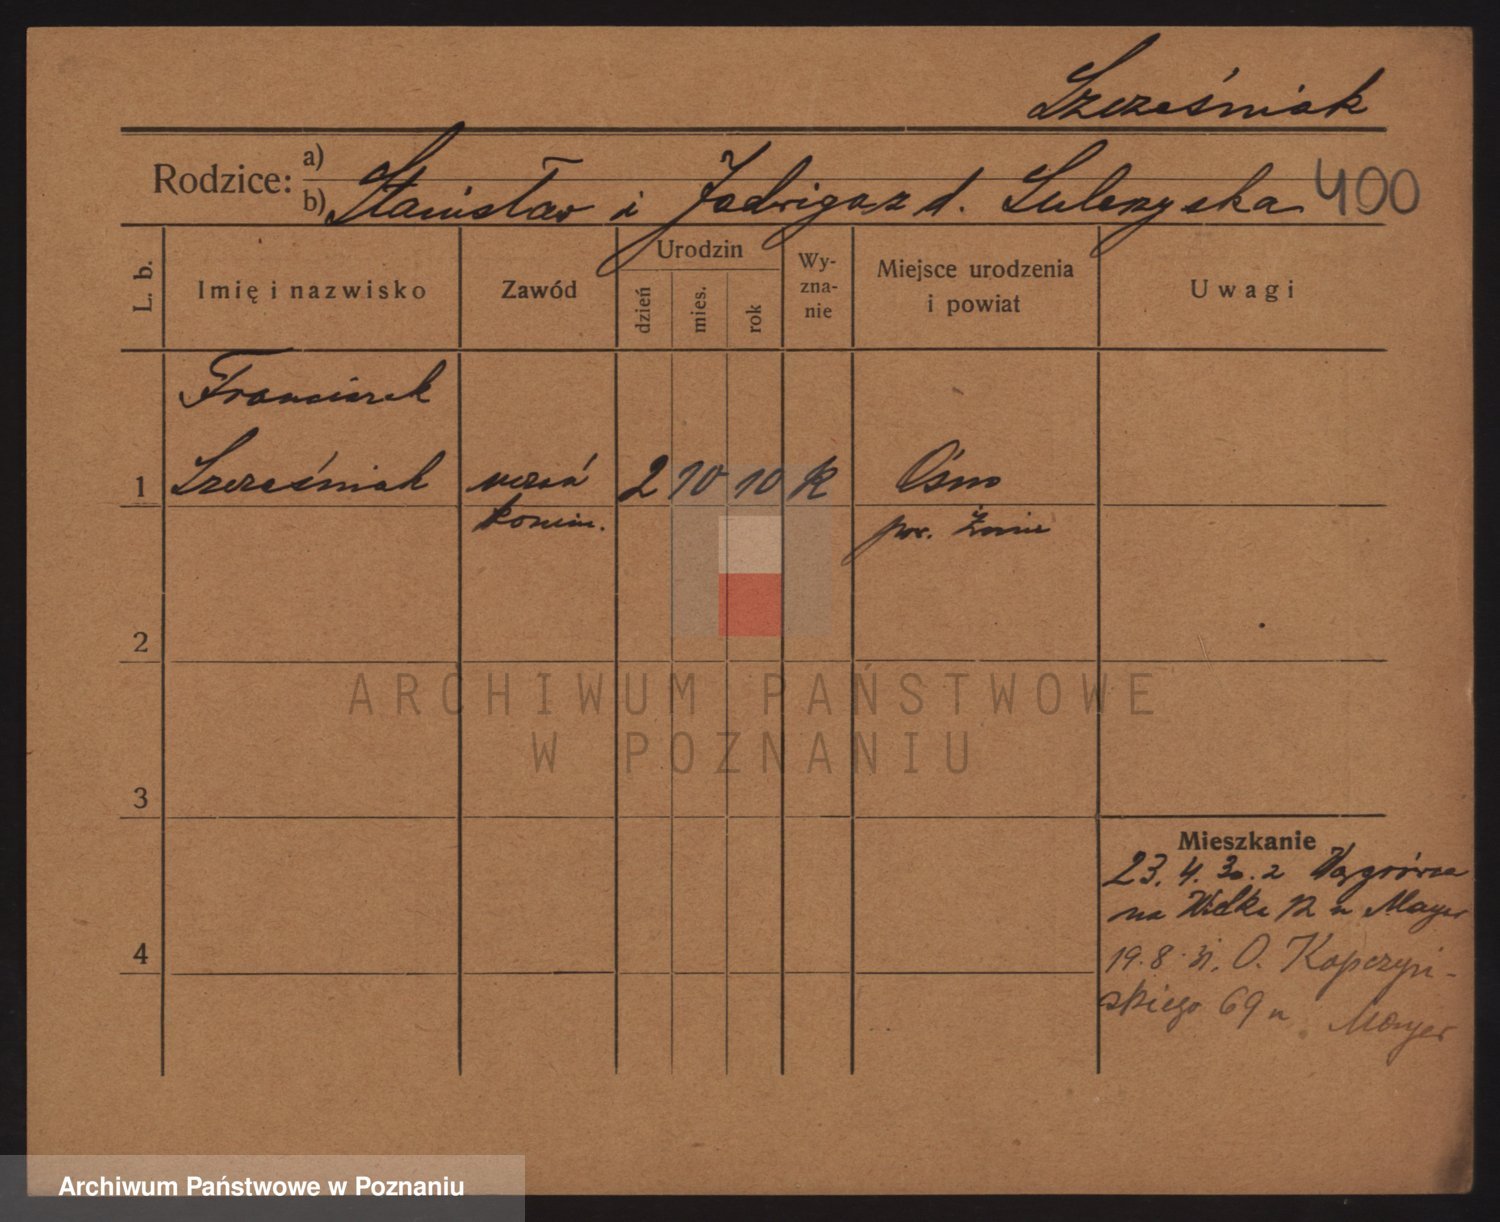 Szcześniak
Rodzice: a)
b) Stanisław i Jadwiga z d. Sulczyska 400
L. b.
Imię i nazwisko
Zawód
Urodzin
dzień
mies.
rok
Wy-
zna-
nie
Miejsce urodzenia
i powiat
Uwagi
Franciszek
1 Szcześniak uczeń 2 10 10 k Ośno
komin. pow. Żnin
2
ARCHIWUM PAŃSTWOWE
W POZNANIU
3
Mieszkanie
23. 4. 30. z Wągrówca
na Wielka 12 u Mayer
4
19. 8. 31. O. Kopczyń-
skiego 69 u Mayer
Archiwum Państwowe w Poznaniu